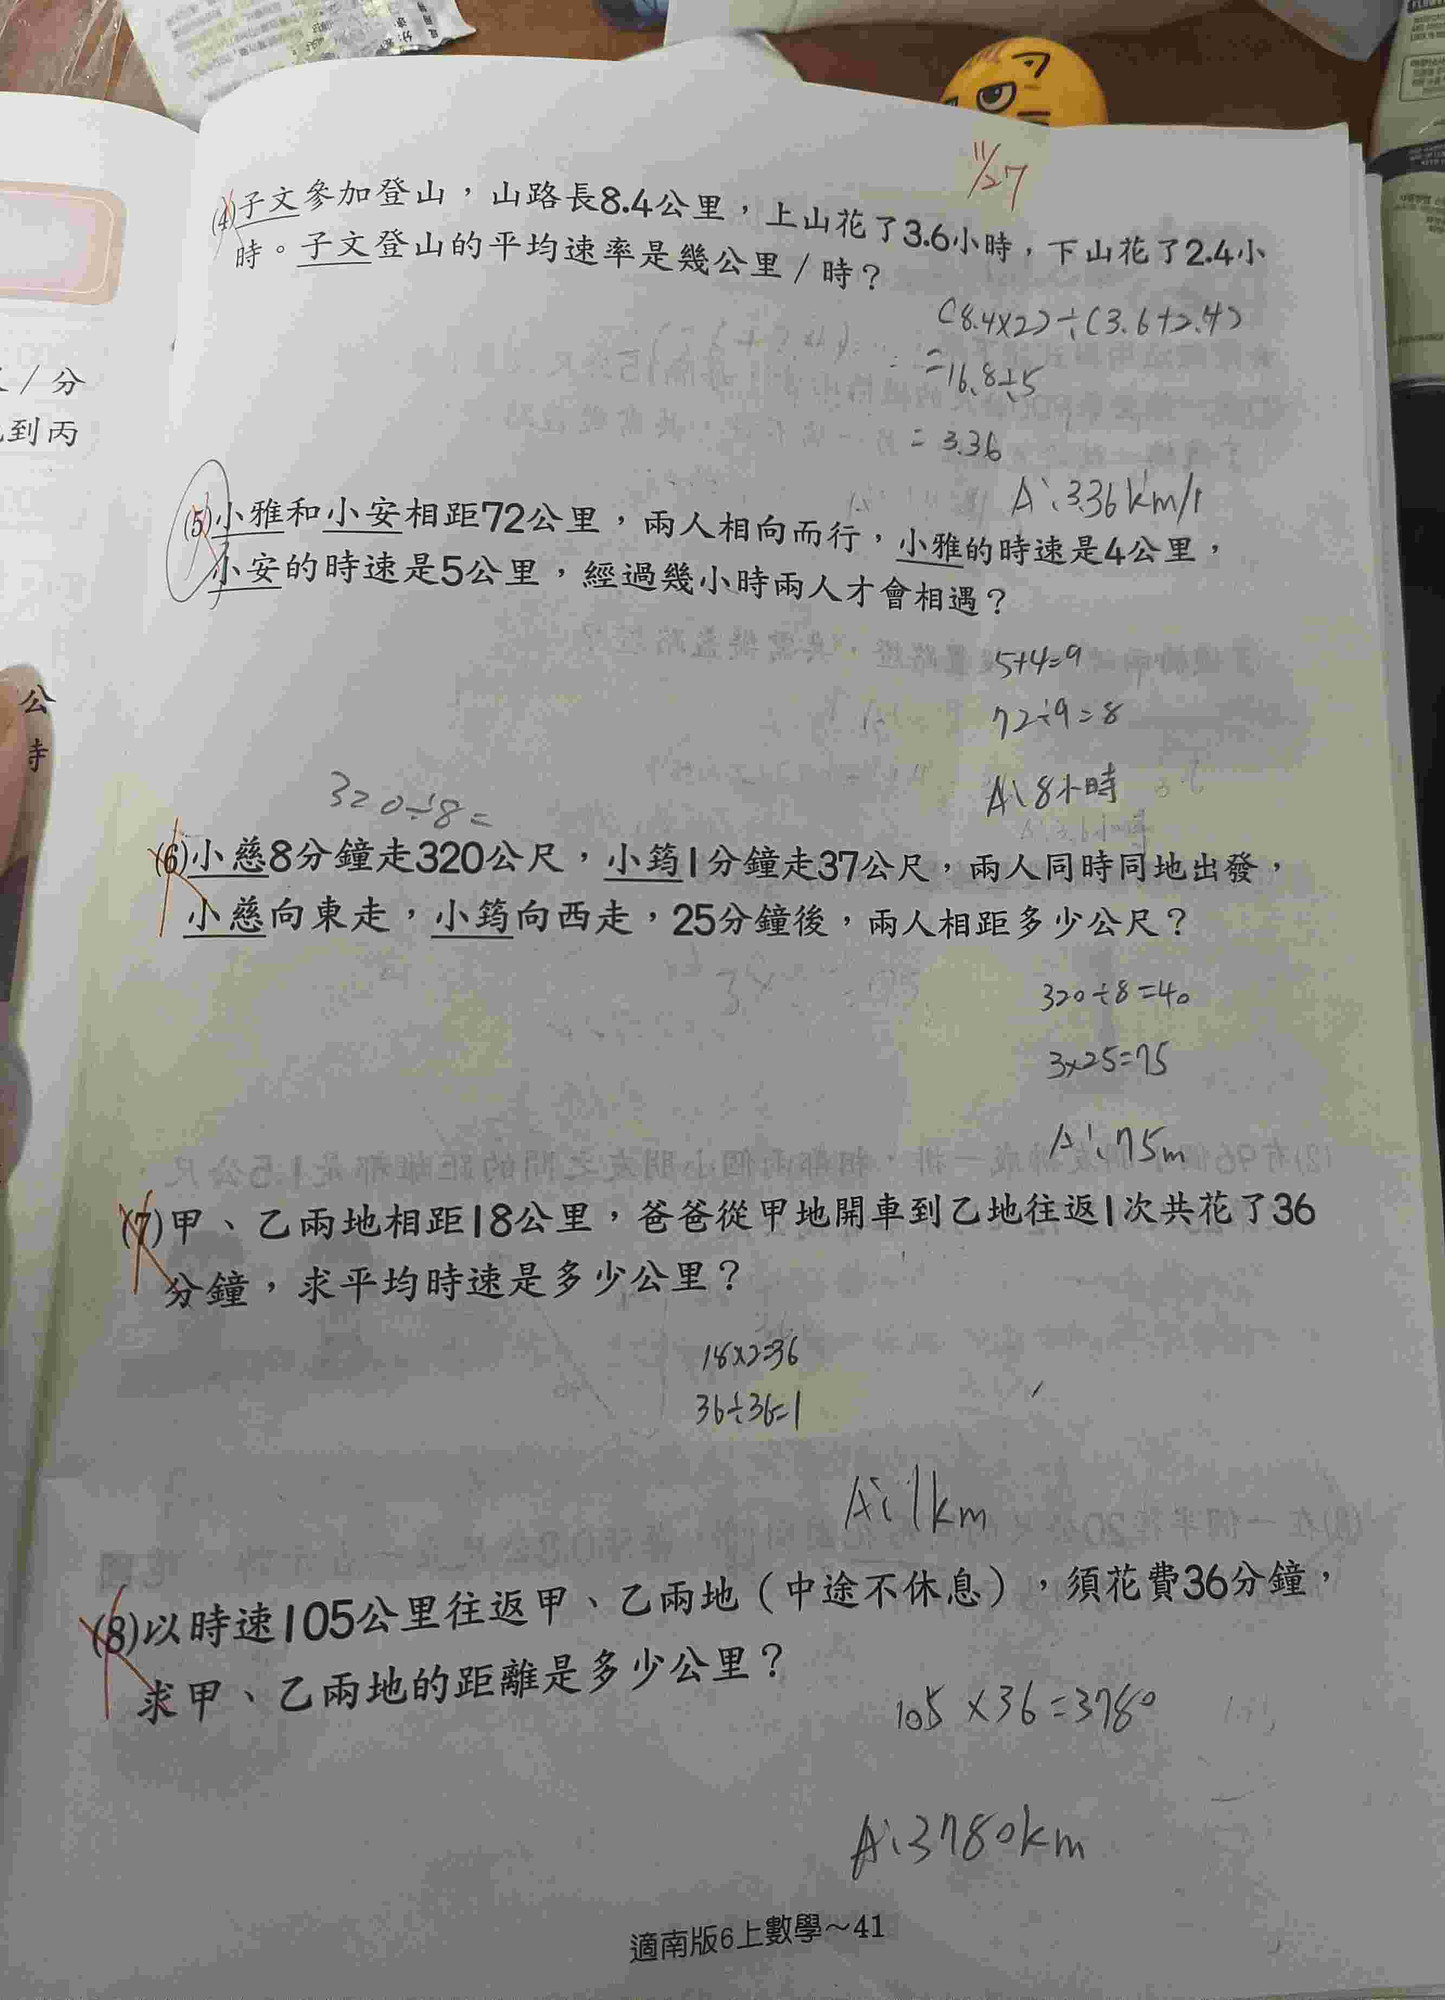 11/27
(4)子文參加登山，山路長8.4公里，上山花了3.6小時，下山花了2.4小
時。子文登山的平均速率是幾公里/時？
(8.4×2)÷(3.6+2.4)
=16.8÷5
= 3.36
A:3.36km/1
(5)小雅和小安相距72公里，兩人相向而行，小雅的時速是4公里，
小安的時速是5公里，經過幾小時兩人才會相遇？
5+4=9
72÷9=8
A:8小時
320÷8=
(6)小慈8分鐘走320公尺，小筠1分鐘走37公尺，兩人同時同地出發，
小慈向東走，小筠向西走，25分鐘後，兩人相距多少公尺？
320÷8=40
3×25=75
A:75m
(7)甲、乙兩地相距18公里，爸爸從甲地開車到乙地往返1次共花了36
分鐘，求平均時速是多少公里？
18×2=36
36÷36=1
A:1km
(8)以時速105公里往返甲、乙兩地（中途不休息），須花費36分鐘，
求甲、乙兩地的距離是多少公里？
105×36=3780
A:3780km
適南版6上數學～41
/分
到丙
公
時